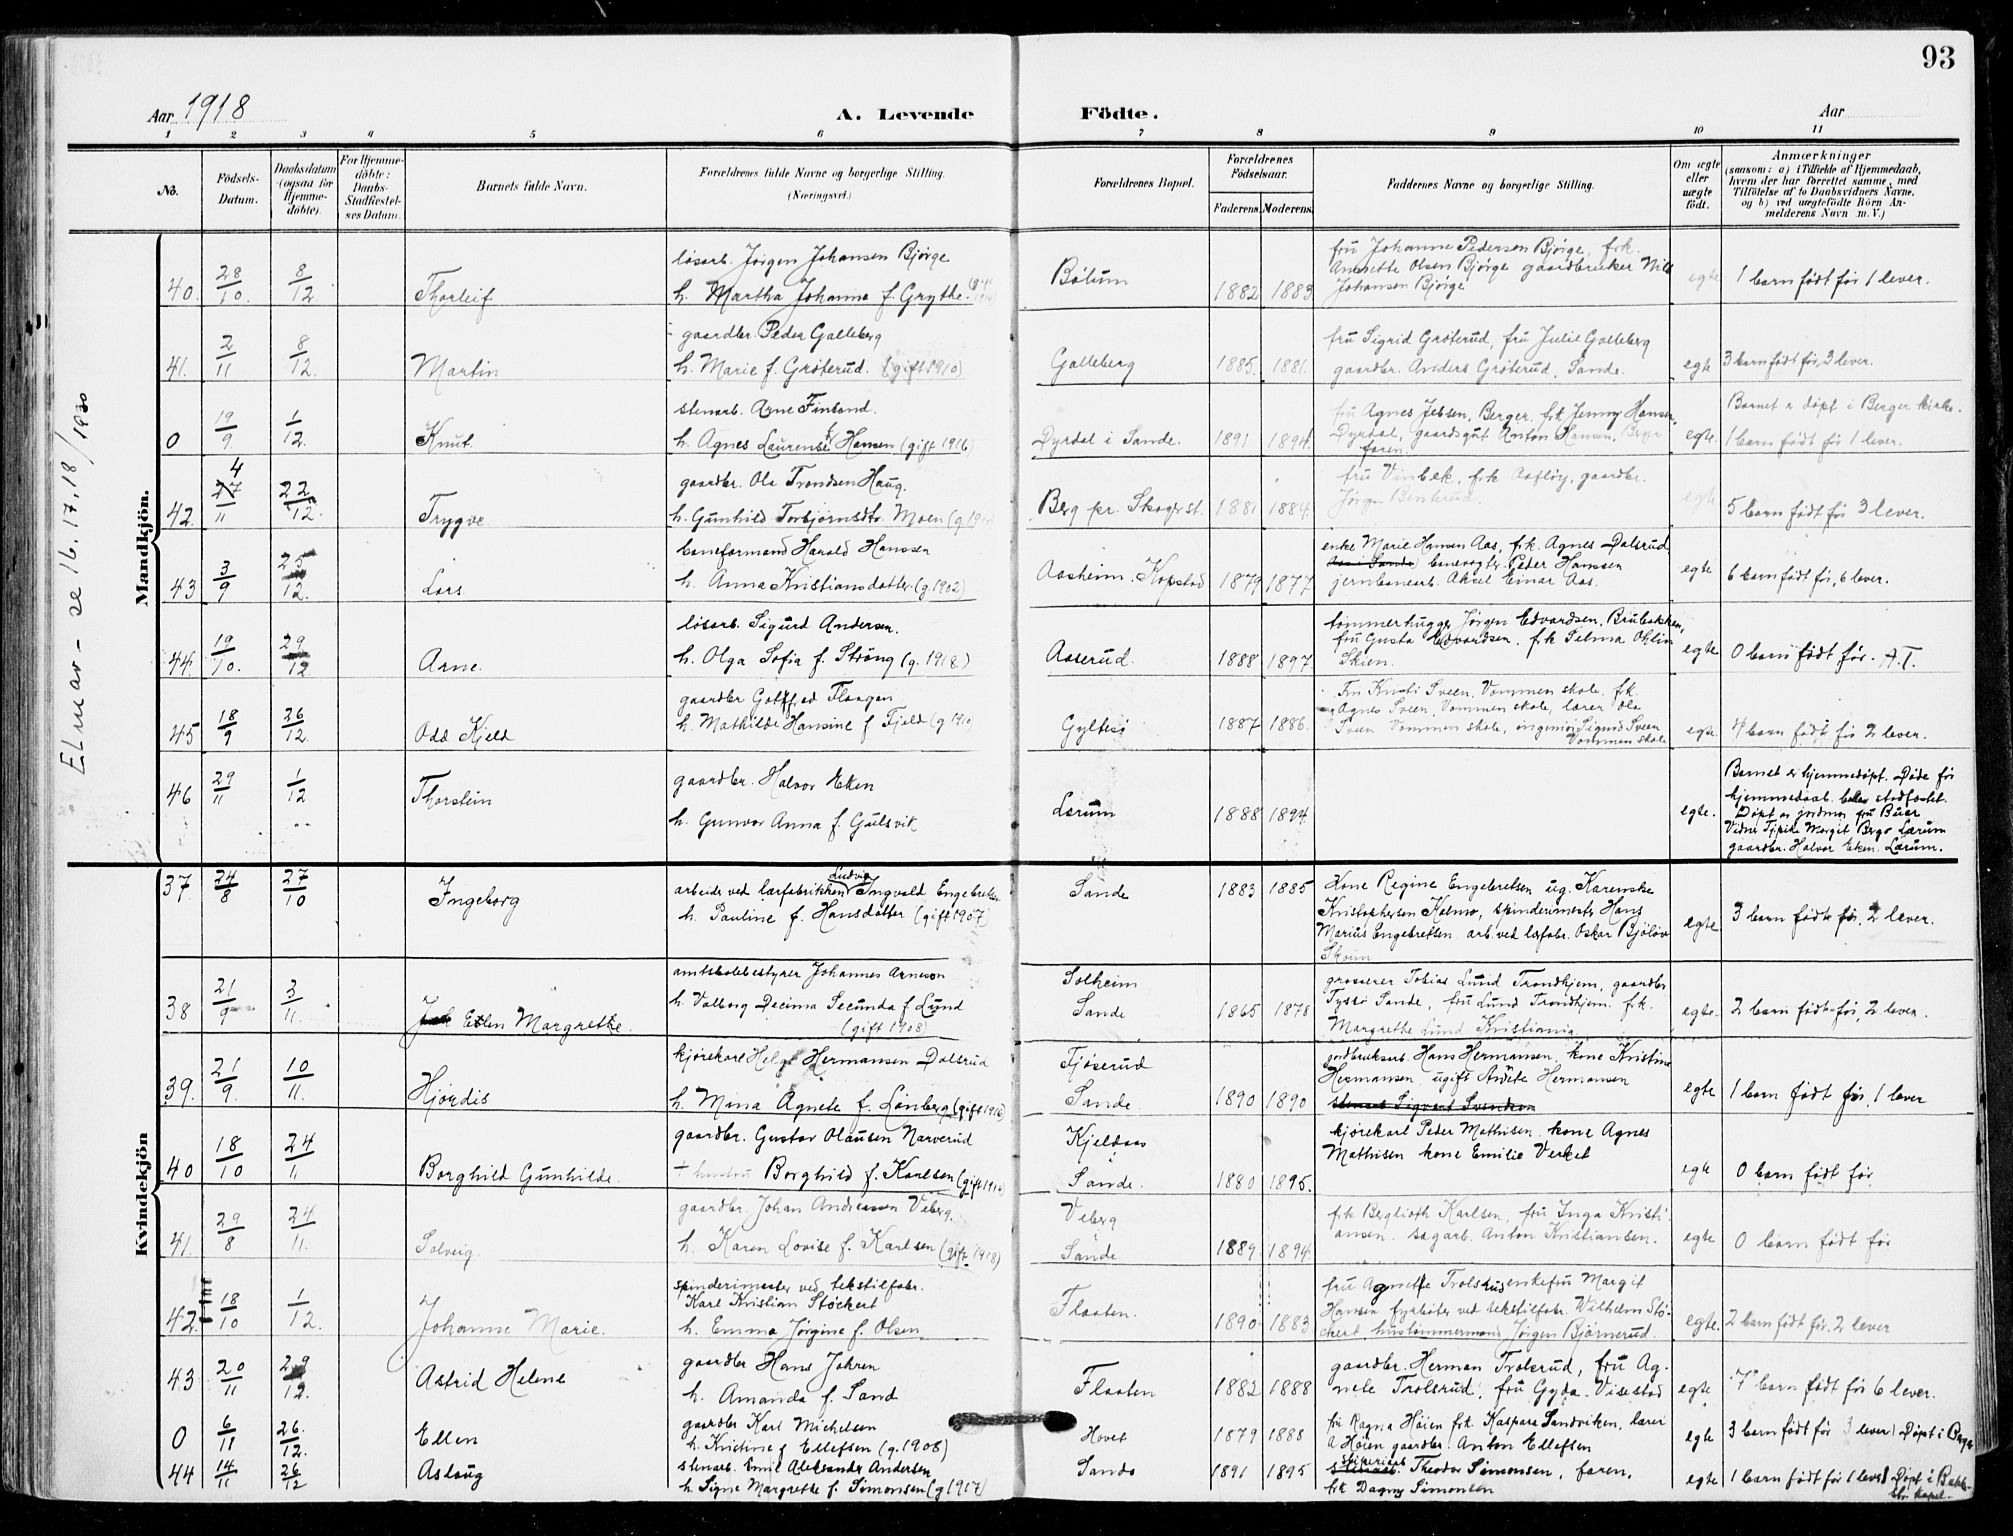 93
Aar 1918
A. Levende Födte.
Aar
1 2 3 4 5 6 7 8 9 10 11
No.
Födsels-Datum.
Daabsdatum (ogsaa for Hjemme-döbte).
For Hjemme-döbte: Daabs-Stadfæstel-ses Datum.
Barnets fulde Navn.
Forældrenes fulde Navne og borgerlige Stilling. (Næringsvei.)
Forældrenes Bopæl.
Forældrenes Födselsaar.
Faderens. Moderens.
Faddernes Navne og borgerlige Stilling.
Om ægte eller uægte födt.
Anmærkninger
(saasom: a) i Tilfælde af Hjemmedaab,
hvem der har forrettet samme, med
Tilföielse af to Daabsvidners Navne,
og b) ved uægtefödte Börn An-
melderens Navn m. V.)
Elmar - se 16.17.18/1920
Mandkjön.
løsarb. Jørgen Johansen Bjørge
fru Johanne Pedersen Bjørge, frk.
Annette Olsen Bjørge gaardbruker Nils
40. 28/10. 8/12 Thorleif h. Martha Johanne f. Grythe. Bølum 1882 1883 Johansen Bjørge egte 1 barn født før 1 lever.
gaardbr. Peder Galleberg
fru Sigrid Grøterud, fru Julie Galleberg
41. 2/11 8/12. Martin h. Marie f. Grøterud. (gift 1910) Galleberg 1885. 1881. gaardbr. Anders Grøterud, Sande. egte 3 barn født før, 3 lever.
stenarb. Arne Finland.
fru Agnes Jebsen, Berger, frk Jenny Hansen,
Barnet er døpt i Berger kirke.
0 19/9 1/12. Knut. h. Agnes Laurense Hansen (gift 1916) Dyrdal i Sande. 1891 1894. Dyrdal, gaardsgut Anton Hansen, Berger egte. 1 barn født før 1 lever.
faren.
gaardbr. Ole Trondsen Haug.
fru Vinbek, frk Aasløy, gaardbr.
42. 4/11 22/12. Trygve h. Gunhild Torbjørnsdtr. Moen Berg pr. Skoger st. 1881 1884. Jørgen egte 5 barn født før 3 lever.
baneformand Harald Hanssen
enke Marie Hansen Aas, frk. Agnes Dalsrud
banevogter Peder Hanssen
43 3/9 25/12. Lars. h. Anna Kristiansdatter (g. 1902) Aasheim. Kopstad 1879 1877 jernbanearb. Aksel Einar Aas. egte 6 barn født før, 6 lever.
løsarb. Sigurd Andersen.
tømmerhugger Jørgen Edvardsen, Brubakken,
fru Gusta Edvardsen, frk Selma Ohlin
44. 19/10. 29/12. Arne. h. Olga Sofia f. Strøng (g. 1918) Aaserud. 1888 1897 Skien. egte 0 barn født før. A.T.
gaardbr Gottfred Flaagan
Fru Kristi Sveen, Vommen skole, frk.
Agnes Sveen, Vommen skole, lærer Ole
45 18/9 26/12. Odd Kjeld h. Mathilde Hansine f. Fjeld (g 1910) Gyltesø 1887 1886. Sveen Vommen skole, ingeniør Sigurd Sveen egte. 4 barn født før 2 lever.
Vommen skole
46 29/11 1/12 Thorstein gaardbr. Halvor Eken
h. Gunvor Anna f. Gulsvik Lerum 1888 1894. egte.
Barnet er hjemmedøpt. Døde før
hjemmedaab. blev stadfæstet.
Døpt av jordmor fru Buer
Vidner Margit Berg Lærum
gaardbr. Halvor Eken. Lærum.
Kvindekjön
37. 24/8 27/10 Ingeborg arbeider ved lærfabrikken Ludvig Ingvald Engebretsen
h. Pauline f. Hansdatter (gift 1907) Sande 1883 1885
Kone Regine Engebretsen ug. Karenske
Kristophersen Holmo, spinderimester Hans
Marius Engebretsen arb. ved lærfabr. Oskar Bjøløv
Skoim egte 3 barn født før, 2 lever.
amtskolebestyrer Johannes Arneson
38 21/9 3/11. Ellen Margrethe. h. Valborg Decima Secunda f. Lund
(gift 1908) Solheim Sande 1865 1878
grosserer Tobias Lund Trondhjem, gaardbr
Tyssø Sande, fru Lund Trondhjem. frk.
Margrethe Lund Kristiania. egte. 2 barn født før, 2 lever.
kjørekarl Helge Hermansen Dalsrud
39. 21/9. 10/11. Hjørdis h. Mina Agnete f. Lønberg (gift 1916) Fjøserud Sande. 1890 1890
jordbruksarb. Hans Hermansen, kone Kristine
Hermansen, ugift Anete Hermansen
stenarb Sigvard Svendsen
egte 1 barn født før, 1 lever
gaardbr. Gustav Olausen Narverud
40 18/10 24/11 Borghild Gunhilde. + hustru Borghild f. Karlsen Kjeldaas i Sande. 1880 1895.
kjørekarl Peder Mathisen kone Agnes
Mathisen kone Emilie Verket
egte 0 barn født før
gaardbr. Johan Andreassen Viberg.
41. 29/8 24/11. Solveig. h. Karen Lovise f. Karlsen (gift 1918) Viberg Sande 1889. 1894.
frk Berglioth Karlsen, fru Inga Kristi-
ansen. sagarb. Anton Kristiansen. egte 0 barn født før
spinderimester ved tekstilfabr.
Karl Kristian Støckert
42. 18/10 1/12. Johanne Marie. h. Emma Jørgine f. Olsen Flaaten. 1890. 1883
fru Agnette Trolsrud enkefru Margit
Hansen fyrbøter ved tekstilfabr. Wilhelm Stø-
ckert, hustømmermand Jørgen Bjørnerud. egte. 2 barn født før, 2 lever
43 20/11 29/12. Astrid Helene gaardbr Hans Johren
h. Amanda f. Sand Flaaten 1882 1888
gaardbr. Herman Trolsrud, fru Ag-
nete Trolsrud, fru Gyda Visestad egte 7 barn født før 6 lever.
0 6/11 26./12. Ellen gaardbr Karl Michelsen
h. Kristine f Ellefsen (g. 1908) Hovet 1879 1888
fru Ragna Høien frk. Kaspara Sandviken, lærer
A Høien gaardbr. Anton Ellefsen egte 3 barn født før 3 lever) Døpt i Berger
44 14/11 26/12 Aslaug stenarb. Emil Aleksander Andersen
h. Signe Margrethe f. Simonsen (g 1917) Sande 1891 1895
Theodor Simonsen, faren,
frk Dagny Simonsen egte 1 barn født før 1 lever) Døpt i
kapel.